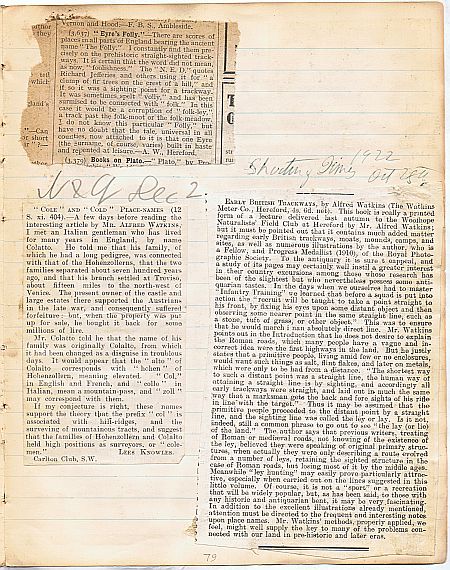 Vernon and Hood:—F. B. S., Ambleside.
(3,637) "Eyre's Folly."—There are scores of
places in all parts of England bearing the ancient
name "The Folly." I constantly find them pre-
cisely on the prehistoric straight-sighted track-
ways. It is certain that the word did not mean,
as now, "foolishness." The "N. E. D." quotes
Richard Jefferies and others using it for "a
clump of fir trees on the crest of a hill," and
if so it was a sighting point for a trackway.
It was sometimes spelt "volly," and has been
surmised to be connected with "folk." In this
case it would be a corruption of "folk-ley,"
a track past the folk-moot or the folk-meadow.
I do not know this particular "Folly," but
have no doubt that the tale, universal in all
counties, now attached to it is that one Eyre
(the surname, of course, varies) built in haste
and repented at leisure.—A. W., Hereford.
(3,379) Books on Plato.—"Plato," by Prof
author
they
tell
which
gland's
"—Can
short
N & Q Dec 2
Shooting Times 1922
Oct 28th
"COLE" AND "COLD" PLACE-NAMES (12
S. xi. 404).—A few days before reading the
interesting article by MR. ALFRED WATKINS,
I met an Italian gentleman who has lived
for many years in England, by name
Colaito. He told me that his family, of
which he had a long pedigree, was connected
with that of the Hohenzollerns, that the two
families separated about seven hundred years
ago, and that his branch settled at Treviso,
about fifteen miles to the north-west of
Venice. The present owner of the castle and
large estates there supported the Austrians
in the late war, and consequently suffered
forfeiture: but, when the property was put
up for sale, he bought it back for some
millions of lire.
Mr. Colaito told he that the name of his
family was originally Colalto, from which
it had been changed as a disguise in troublous
days. It would appear that the "alto" of
Colalto corresponds with "hohen" of
Hohenzollern, meaning elevated. "Col,"
in English and French, and "colle" in
Italian, mean a mountain-pass, and "zoll"
may correspond with them.
If my conjecture is right, these names
support the theory that the prefix "col" is
associated with hill-ridges, and the
surveying of mountainous tracts, and suggest
that the families of Hohenzollern and Colalto
held high positions as surveyors, or "cole-
men." LEES KNOWLES.
Carlton Club, S.W.
EARLY BRITISH TRACKWAYS, by Alfred Watkins (The Watkins
Meter Co., Hereford, 4s. 6d. net). This book is really a printed
form of a lecture delivered last autumn to the Woolhope
Naturalists' Field Club at Hereford by Mr. Alfred Watkins;
but it must be pointed out that it contains much added matter
regarding early British trackways, moats, mounds, camps, and
sites, as well as numerous illustrations by the author, who is
a Fellow, and Progress Medallist (1910), of the Royal Photo-
graphic Society. To the antiquary it is sure to appeal, and
a study of its pages may certainly well instil a greater interest
in their country excursions among those whose research has
been of the slightest but who nevertheless possess some anti-
quarian tastes. In the days when we ourselves had to master
"Infantry Training" we learned that before a squad is put into
action the "recruit will be taught to take a point straight to
his front, by fixing his eyes upon some distant object and then
observing some nearer point in the same straight line, such as
a stone, tuft of grass, or other object." This was to ensure
that he would march in an absolutely direct line. Mr. Watkins
points out in the Introduction that he does not desire to explain
the Roman roads, which many people have a vague and in-
correct idea were the first highways in the land. But he justly
states that a primitive people, living amid few or no enclosures,
would want such things as salt, flint flakes, and later on metals,
which were only to be had from a distance. "The shortest way
to such a distant point was a straight line, the human way of
attaining a straight line is by sighting, and accordingly all
early trackways were straight, and laid out in much the same
way that a marksman gets the back and fore sights of his rifle
in line with the target." Thus it may be assumed that the
primitive people proceeded to the distant point by a straight
line, and the sighting line was called the ley or lay. Is it not,
indeed, still a common phrase to go out to see "the lay (or lie)
of the land." The author says that previous writers, treating
of Roman or mediæval roads, not knowing of the existence of
the ley, believed they were speaking of original primary struc-
tures, when actually they were only describing a route evolved
from a number of leys, retaining the sighted structure in the
case of Roman roads, but losing most of it by the middle ages.
Meanwhile "ley hunting" may easily prove particularly attrac-
tive, especially when carried out on the lines suggested in this
little volume. Of course, it is not a "sport" or a recreation
that will be widely popular, but, as has been said, to those with
any historic and antiquarian bent, it may be very fascinating.
In addition to the excellent illustrations already mentioned,
attention must be directed to the frequent and interesting notes
upon place names. Mr. Watkins' methods, properly applied, we
feel, might well supply the key to many of the problems con-
nected with our land in pre-historic and later eras.
79